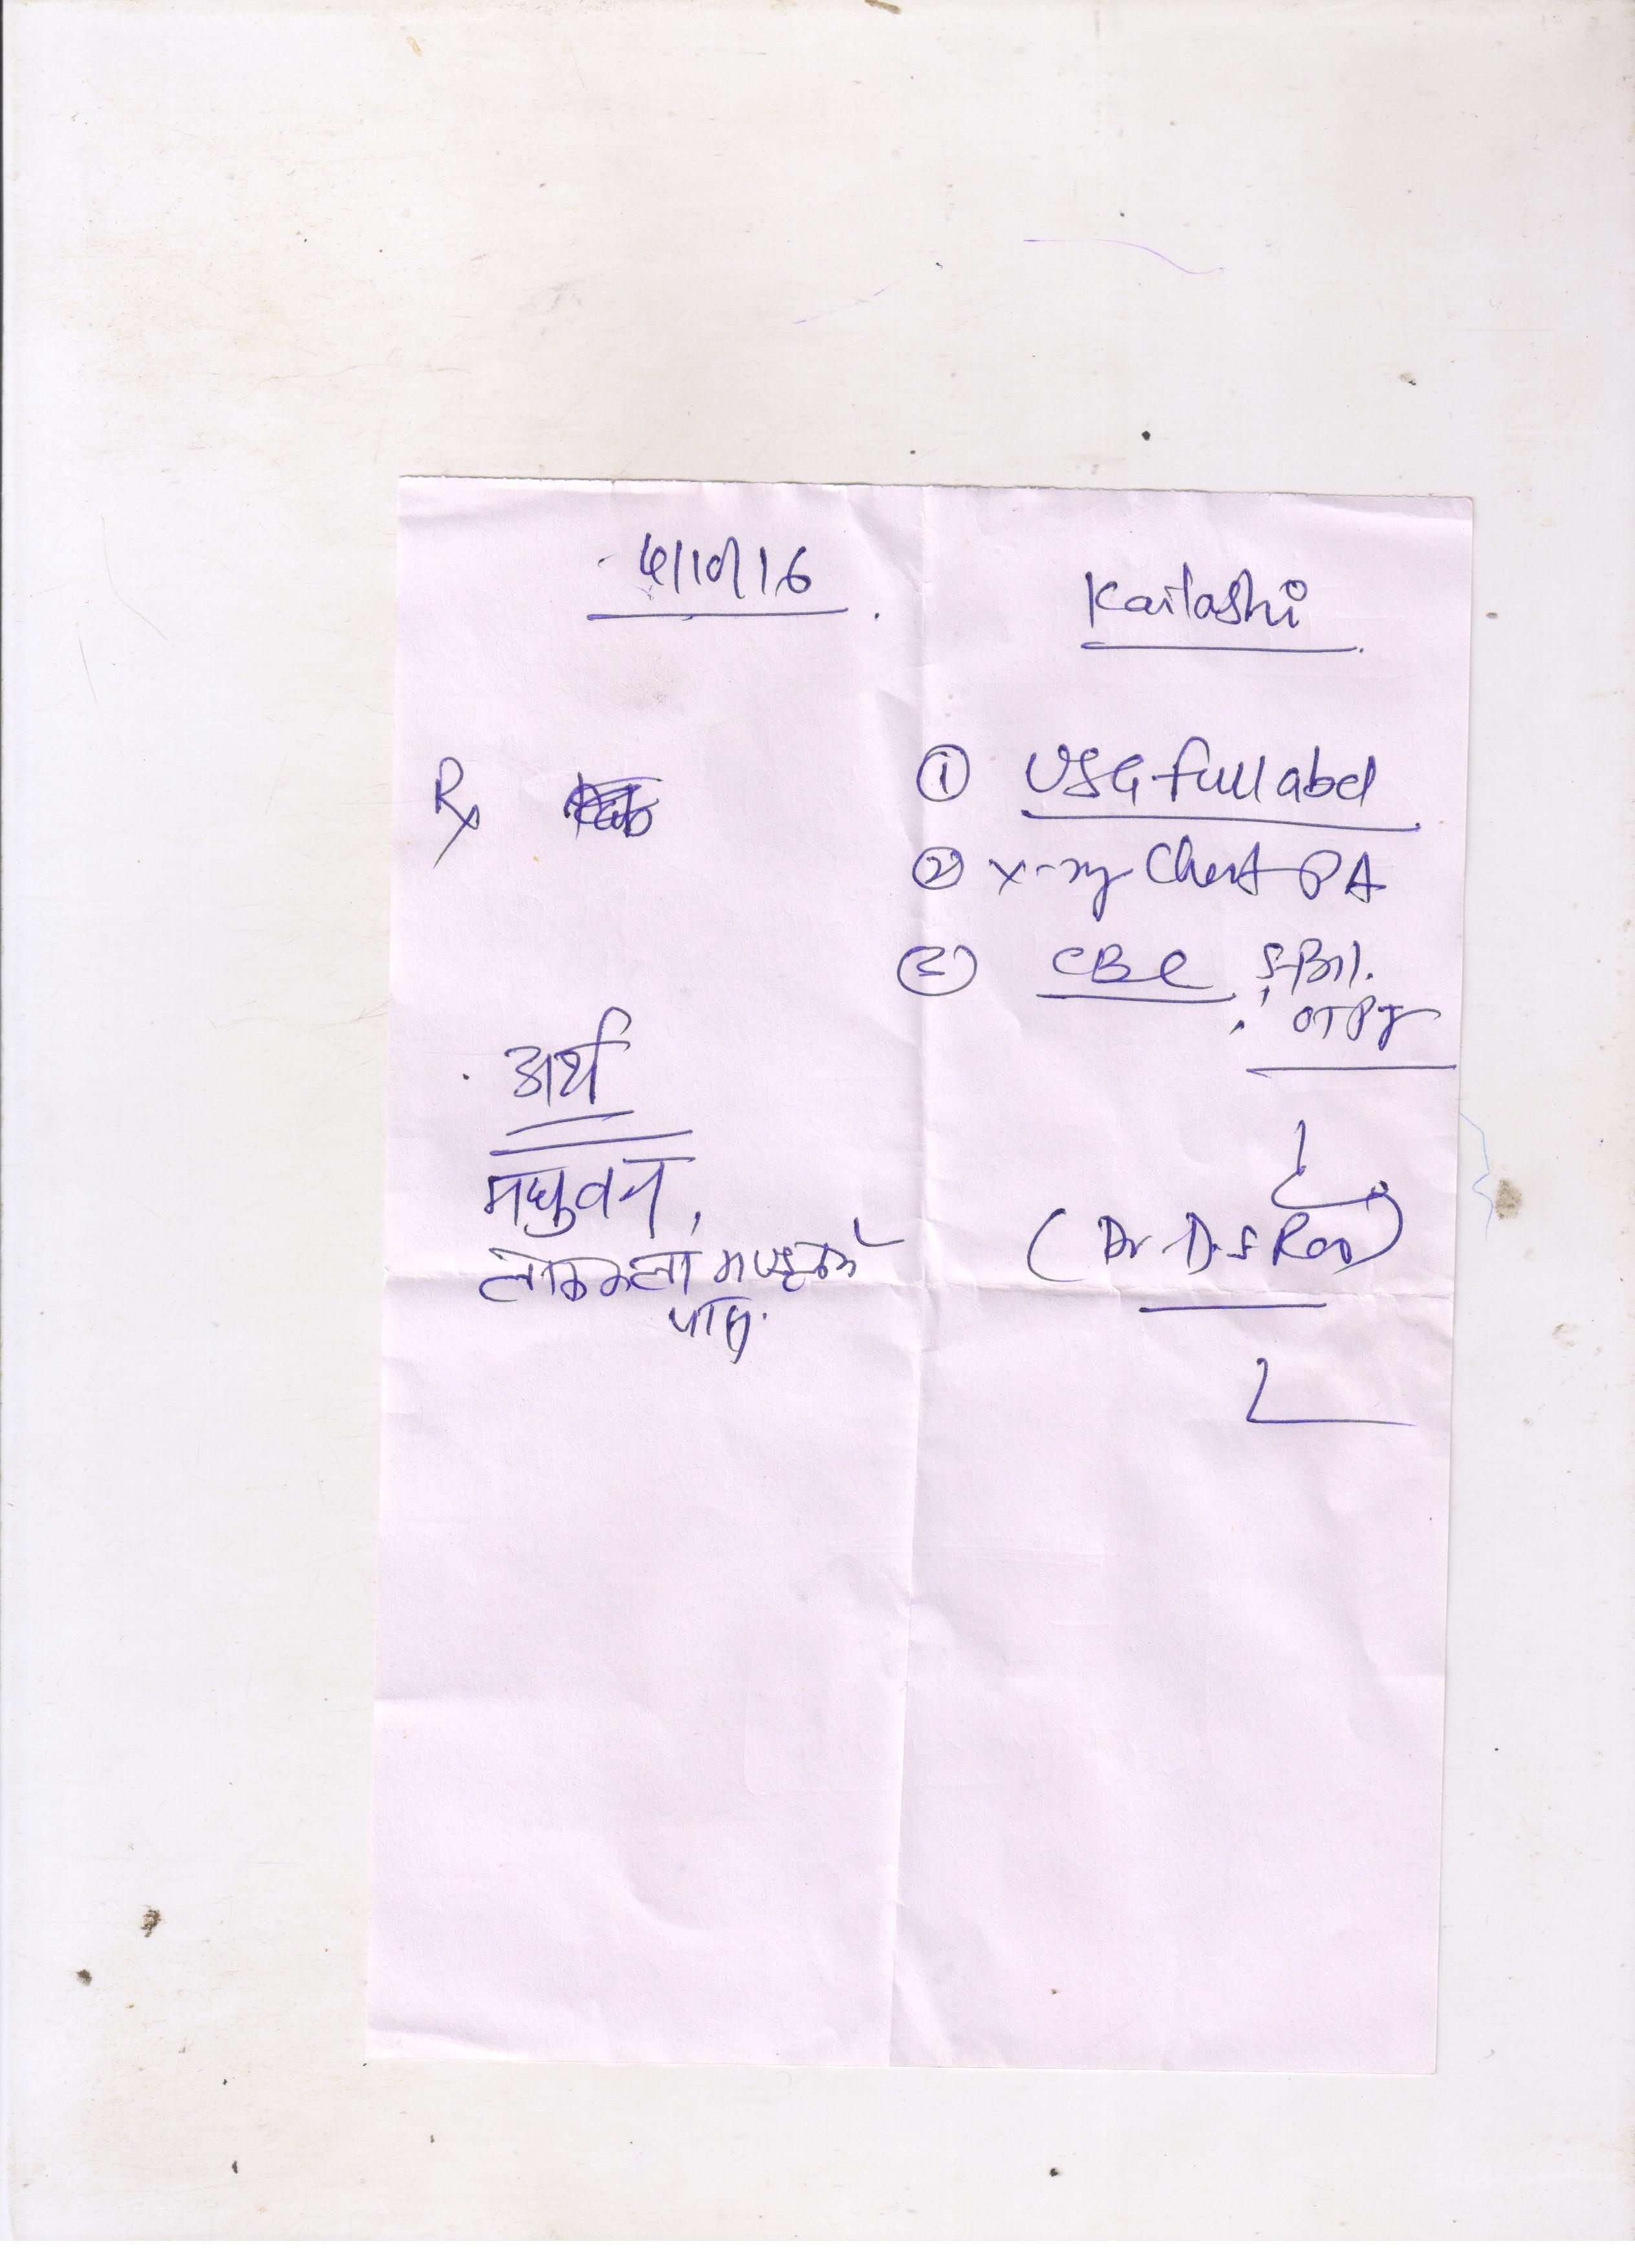 /10/16
Kailashi
Rx
① USG full abd
② x-ray Chest PA
③ CBC, S-Bil.
OT PT
अर्थ
मधुवन,
लोककला मण्डल के
पास.
(Dr D.S Rao)